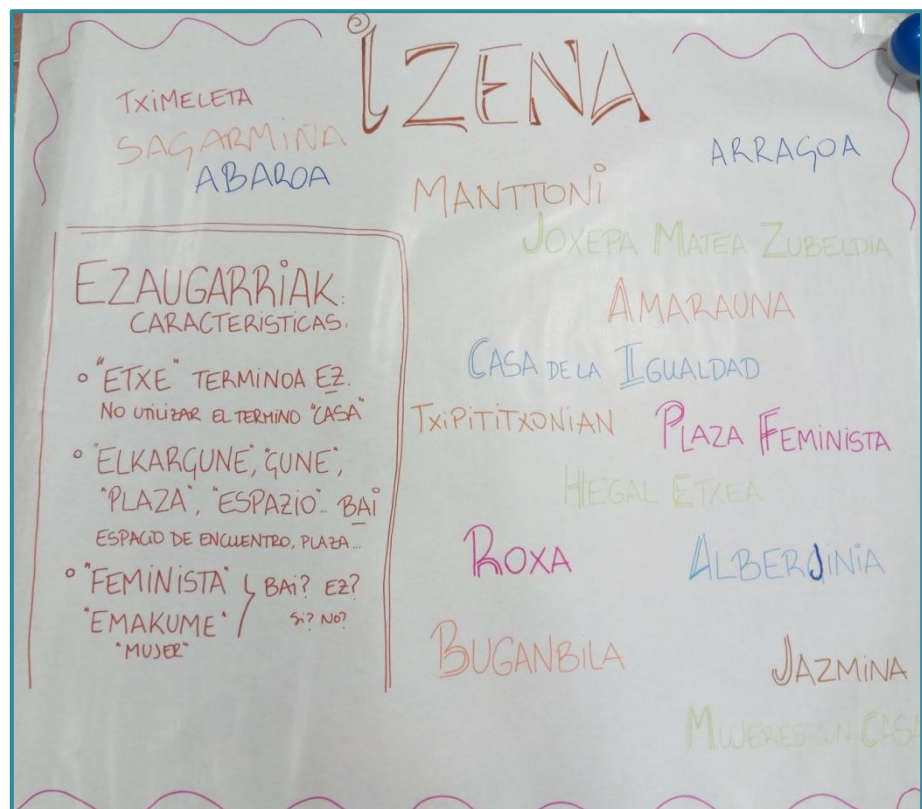 IZENA
TXIMELETA
SAGARMIÑA
ABAROA
ARRAGOA
MANTTONI
JOXEPA MATEA ZUBELDIA
AMARAUNA
CASA DE LA IGUALDAD
TXIPITITXONIAN
PLAZA FEMINISTA
HEGAL ETXEA
ROXA
ALBERJINIA
BUGANBILA
JAZMINA
MUJERES CON CASA
EZAUGARRIAK:
CARACTERISTICAS:
° "ETXE" TERMINOA EZ.
NO UTILIZAR EL TERMINO "CASA"
° "ELKARGUNE", "GUNE",
"PLAZA", "ESPAZIO"... BAI
ESPACIO DE ENCUENTRO, PLAZA...
° "FEMINISTA" BAI? EZ?
"EMAKUME" SI? NO?
"MUJER"